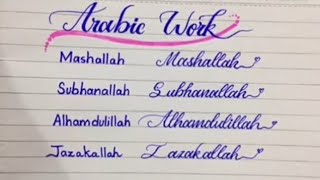 Arabic Work
Mashallah Mashallah
Subhanallah Subhanallah
Alhamdulillah Alhamdulillah
Jazakallah Jazakallah